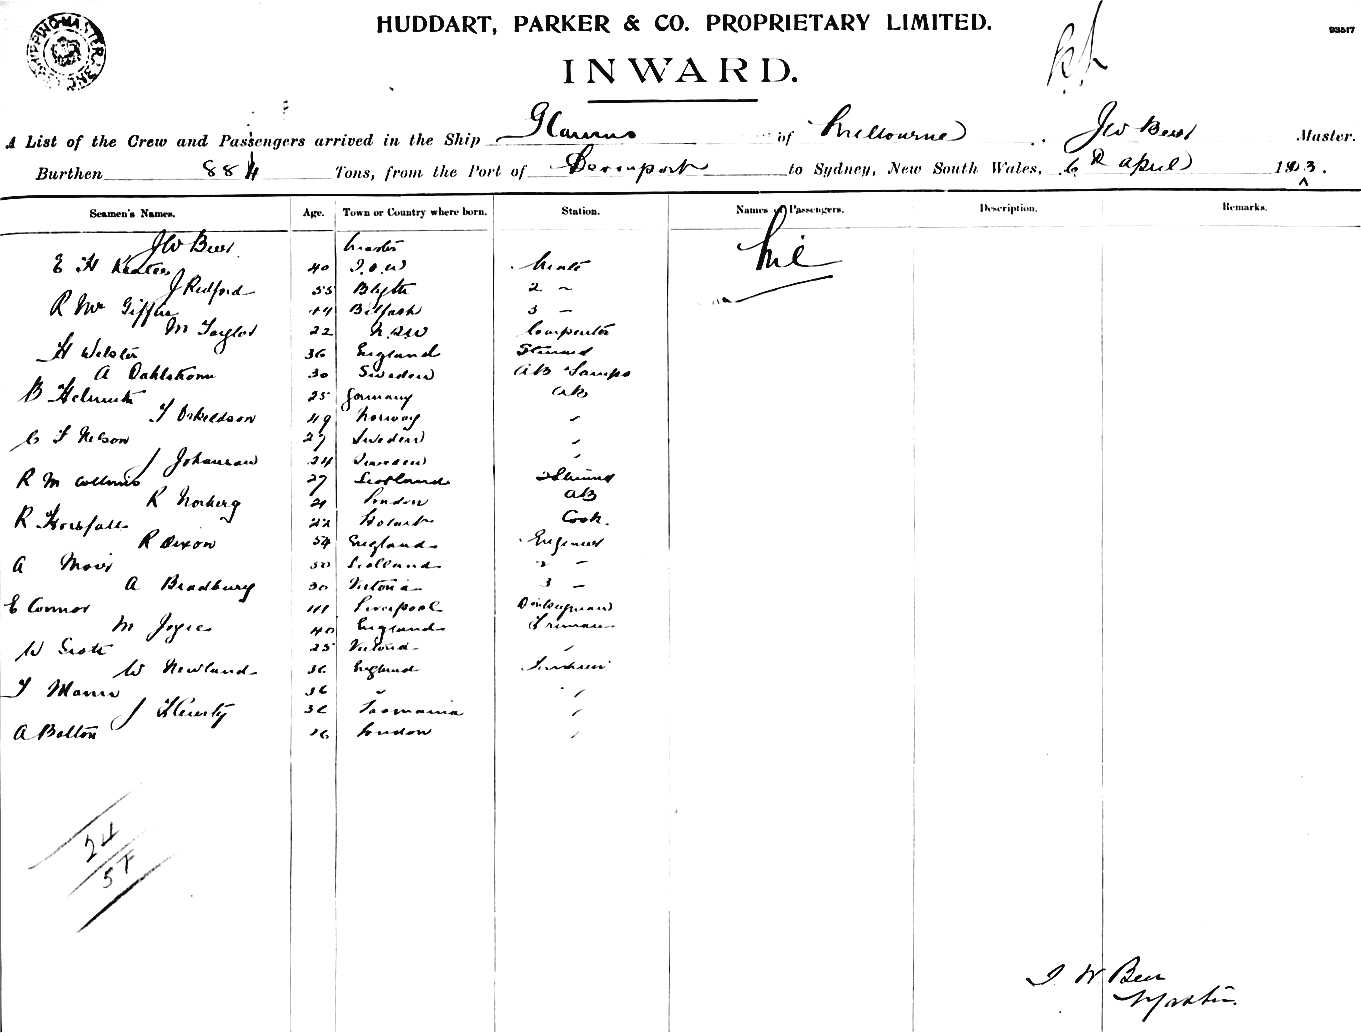 HUDDART, PARKER & CO. PROPRIETARY LIMITED.
93517
INWARD.
A List of the Crew and Passengers arrived in the Ship Glaucus of Melbourne J W Beer Master.
Burthen 884 Tons, from the Port of Devonport to Sydney, New South Wales, 6th April 1903.
Seamen's Names. Age. Town or Country where born. Station. Names of Passengers. Description. Remarks.
J W Beer Master Nil
E H 40 I.O.W Mate
J Redford 55 Blyth 2 ~
R Mc Giffin 44 Belfast 3 –
M Taylor 22 N.S.W Carpenter
H Webster 36 England Steward
A Dahlstrom 30 Sweden AB Lamps
B Helmuth 25 Germany AB
T Osbeldson 49 Norway "
C F Nelson 27 Sweden "
J Johansson 24 Sweden "
R M Collumis 27 Scotland 2 Steward
R Norberg 21 London AB
R Horsfall 22 Hobart Cook.
R Dixon 54 England Engineer
A Moir 50 Scotland 2 –
A Bradbury 30 Victoria 3 –
E Connor 41 Liverpool Donkeyman
M Joyce 40 England Fireman
W Scott 25 Victoria "
W Newland 36 England
T Mann 36 " "
J Hearty 36 Tasmania "
A Bolton 26 London "
24
57
J W Beer
Master.